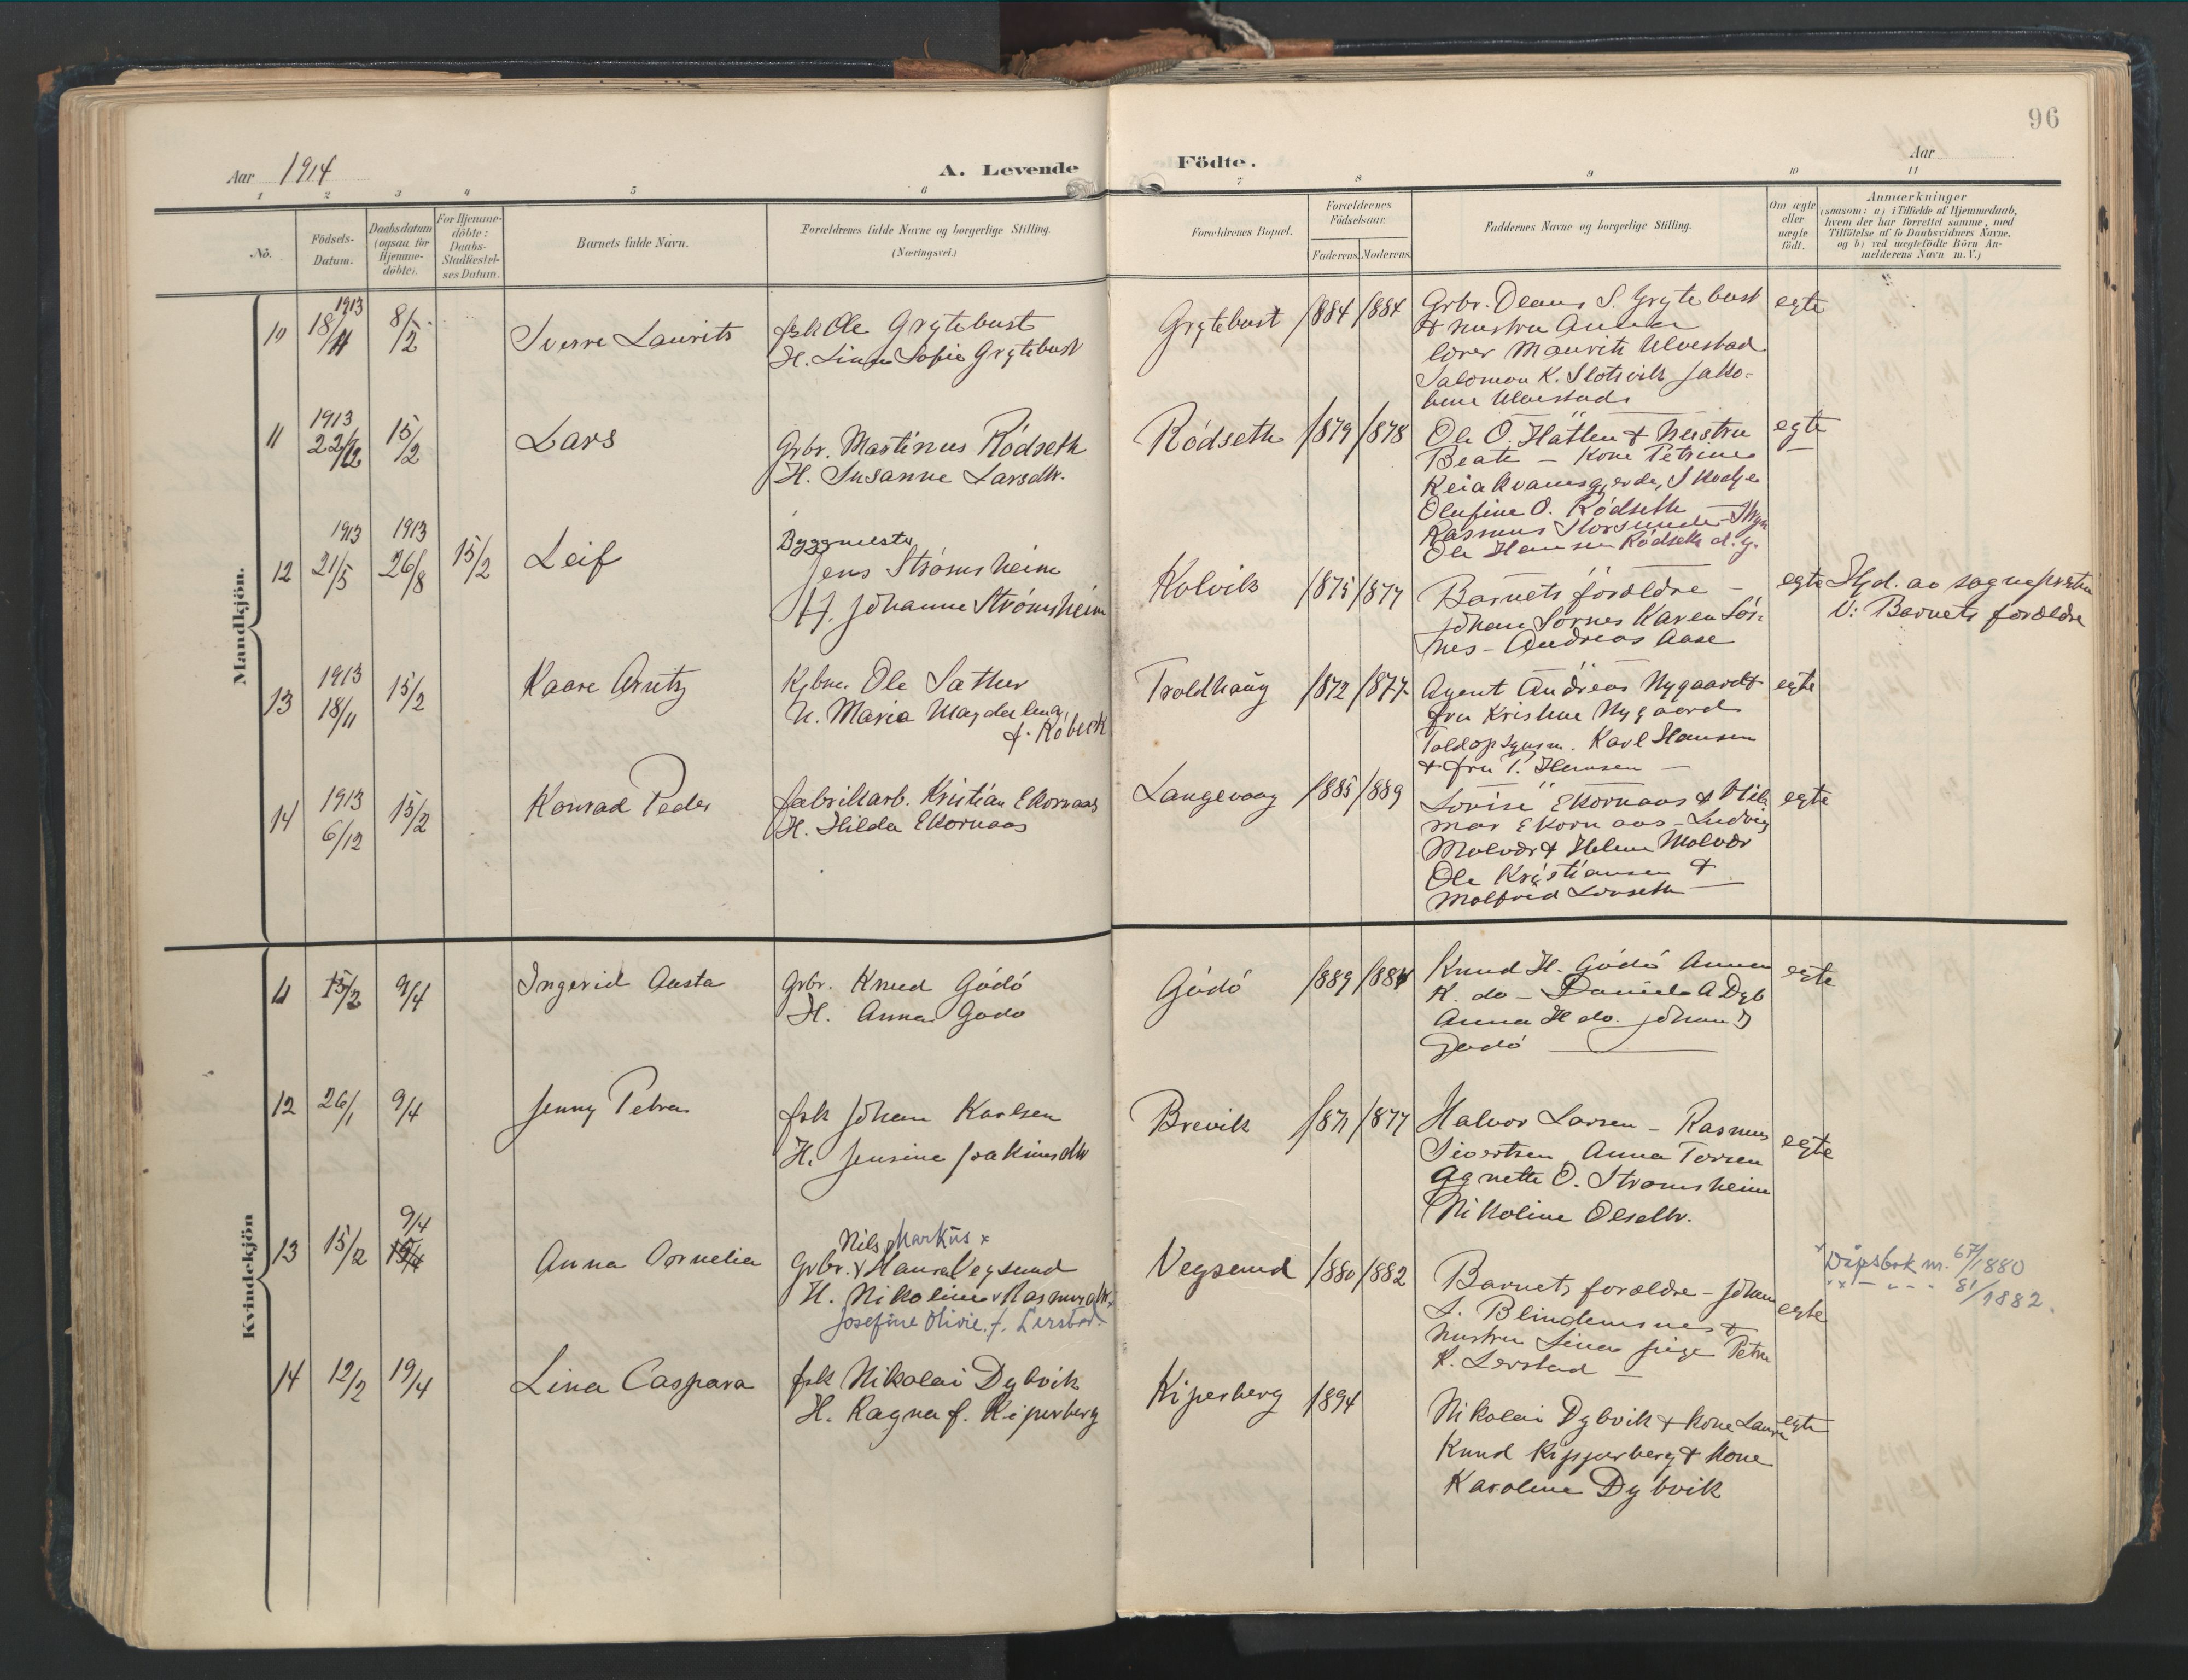 96
Aar 1914
A. Levende
Födte.
Aar
1 2 3 4 5 6 7 8 9 10 11
No.
Födsels-
Datum.
Daabsdatum
(ogsaa for
Hjemme-
döbte).
For Hjemme-
döbte:
Daabs-
Stadfæstel-
ses Datum.
Barnets fulde Navn.
Forældrenes fulde Navne og borgerlige Stilling.
(Næringsvei.)
Forældrenes Bopæl.
Forældrenes
Födselsaar.
Faderens. Moderens.
Faddernes Navne og borgerlige Stilling.
Om ægte
eller
uægte
födt.
Anmærkninger
(saasom: a) i Tilfælde af Hjemmedaab,
hvem der har forrettet samme, med
Tilföielse af to Daabsvidners Navne.
og b) ved uægtefödte Börn An-
melderens Navn m. V.)
Mandkjön.
10
1913
18/11
8/2
Sverre Laurits
fsk Ole Grytebust
H. Lina Sofie Grytebust
Grytebust
1884 1884
Grbr. S. Grytebust
& hustru Anna
lærer Maurits Ulvestad
Salomon K. Slotsvik Jako-
bine Ulvestad
egte
11
1913
22/12
15/2
Lars
Grbr. Martinus Rödseth
H. Susanne Larsdtr.
Rödseth
1879 1878
Ole O. Hatlen & hustru
Beate – Kone Petrine
Kvamsgjerde, Skodje
Olufine O. Rödseth
Rasmus
Ole Hansen Rödseth d.y.
egte
12
1913
21/5
1913
26/8
15/2
Leif
Byggmester
Jens Strömsheim
H. Johanne Strömsheim
Kolvik
1875 1877
Barnets forældre –
Johan Sörnes Karen Sör-
nes – Andreas Aase
egte
Hjd. av sognepresten
V: Barnets forældre
13
1913
18/11
15/2
Kaare Arntz
Kjbm. Ole Sæther
H. Maria Magdalena
f. Röbeck
Troldhaug
1872 1877
Agent Andreas Nygaard &
fru Kristine Nygaard
Toldopsynsm. Karl Hansen
& fru T. Hansen –
egte
14
1913
6/12
15/2
Konrad Peder
fabrikarb. Kristian Ekornaas
H. Hilda Ekornaas
Langevaag
1885 1889
Lovise Ekornaas & Hil-
mar Ekornaas – Ludvig
Molvær & Helene Molvær
Ole Kristiansen &
Molfrid
egte
Kvindekjön
11
15/2
9/4
Ingerid Aasta
Grbr. Knud Gödö
H. Anna Gödö
Gödö
1889 1884
Knud H. Gödö Anna
K. do – Daniel A Dyb
Anna H do. Johan J
Gödö
egte
12
26/1
9/4
Jenny Petra
fsk Johan Karlsen
H. Jensine Joakimsdtr
Brevik
1871 1877
Halvor Larsen – Rasmus
Sivertsen Anna
Agnette O. Strömsheim
Nikoline Olsdtr.
egte
13
15/2
9/4
Anna Cornelia
Nils Markus x
Grbr. Vegsund
H. Nikoline Rasmusdtr.
Josefine Olivie f. Lerstad
Vegsund
1880 1882
Barnets forældre – Johan
S. Blindemsnes &
hustru Lina pige Petra
K. Lerstad –
egte
x Dåpsbok nr. 67/1880
x – " – " 81/1882.
14
12/2
19/4
Lina Caspara
fsk Nikolai Dybvik
H. Ragna f. Kiperberg
Kiperberg
1894
Nikolai Dybvik & kone
Knud Kipperberg & kone
Karoline Dybvik
egte